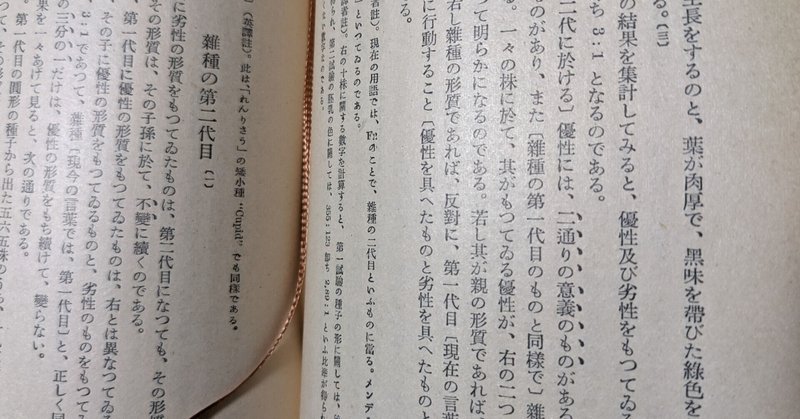 生長をするのと、葉が肉厚で、黑味を帶びた綠色を
る。(三)
の結果を集計してみると、優性及び劣性をもつてゐる
ち 3:1 となるのである。
二代に於ける〕優性には、二通りの意義のものがある
ものがあり、また〔雜種の第一代目のものと同樣で〕雜
る。一々の株に於て、其がもつてゐる優性が、右の二つ
つて明らかになるのである。若し其が親の形質であれば
若し雜種の形質であれば、反對に、第一代目〔現在の言葉
に行動すること〔優性を具へたものと劣性を具へたものと
る。
譯者註)。現在の用語では、F₂のことで、雜種の二代目といふものに當る。メンデ
といつてゐるのである。
譯者註)。右の十株に關する數字を計算すると、第一試驗の種子の形に關しては、
得られ、第二試驗の胚乳の色に關しては、355:123 卽ち 2.89:1 といふ比率が得られ
數字なのである。
(英譯註)。此は「れんりさう」の矮小種 “Cupid” でも同樣である。
雜種の第二代目(一)
に劣性の形質をもつてゐたものは、第二代目になつても、その形質
その形質は、その子孫に於て、不變に續くのである。
第一代目に優性の形質をもつてゐたものは、右とは異なつてゐる
その子に優性の形質をもつてゐるものと、劣性のものをもつてゐる
であつて、雜種〔現今の言葉では、第一代目〕と、正しく同
の三分の一だけは、優性の形質をもち續けて、變らない。
果を一々あげて見ると、次の通りである。
第一代目の圓形の種子から出た五六五株のうち、